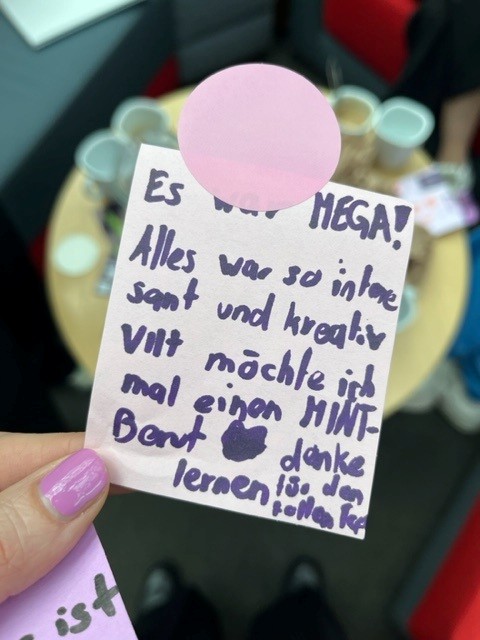 Es war MEGA!
Alles war so intere
sant und kreativ
Vllt möchte ich
mal einen MINT-
Beruf danke
lernen für den
tollen Tag
ist